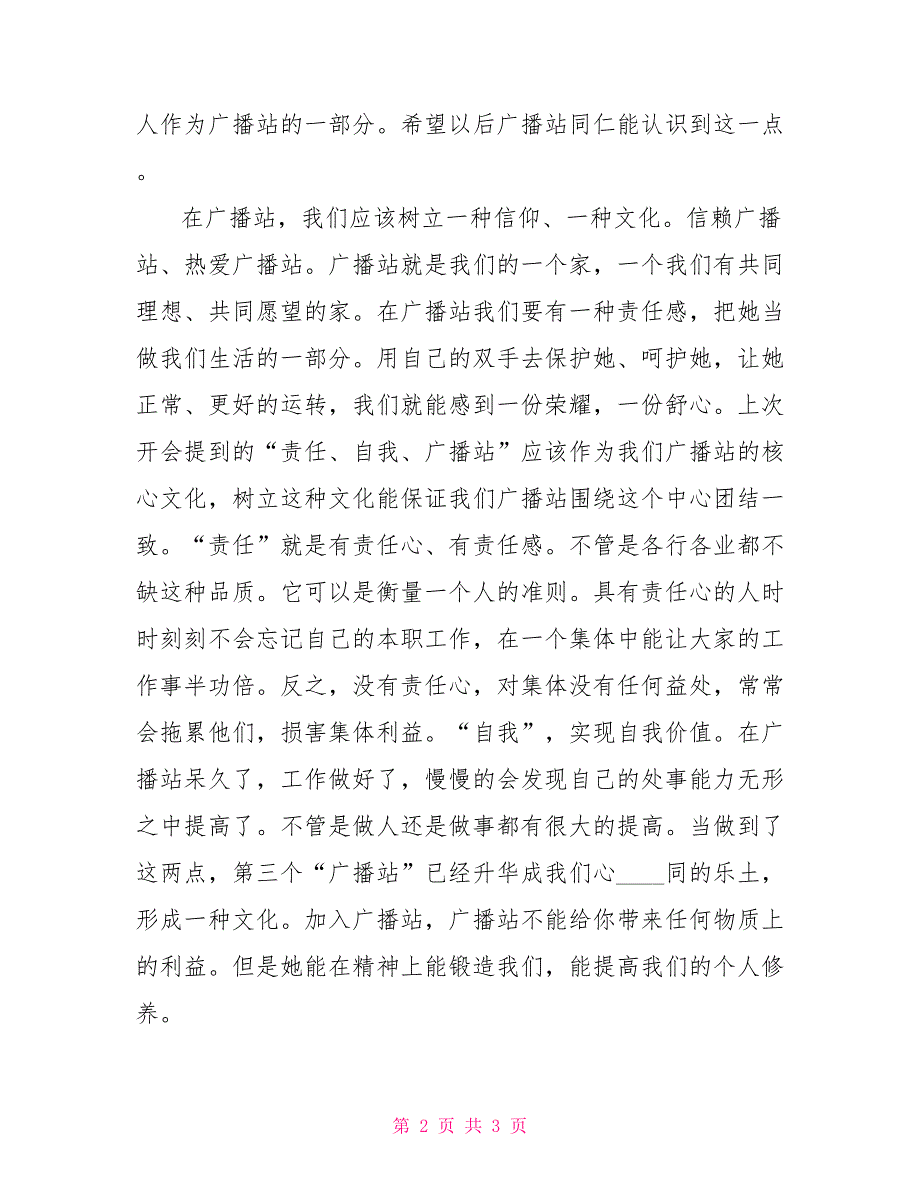 人作为广播站的一部分。希望以后广播站同仁能认识到这一点
。
在广播站，我们应该树立一种信仰、一种文化。信赖广播
站、热爱广播站。广播站就是我们的一个家，一个我们有共同
理想、共同愿望的家。在广播站我们要有一种责任感，把她当
做我们生活的一部分。用自己的双手去保护她、呵护她，让她
正常、更好的运转，我们就能感到一份荣耀，一份舒心。上次
开会提到的“责任、自我、广播站”应该作为我们广播站的核
心文化，树立这种文化能保证我们广播站围绕这个中心团结一
致。“责任”就是有责任心、有责任感。不管是各行各业都不
缺这种品质。它可以是衡量一个人的准则。具有责任心的人时
时刻刻不会忘记自己的本职工作，在一个集体中能让大家的工
作事半功倍。反之，没有责任心，对集体没有任何益处，常常
会拖累他们，损害集体利益。“自我”，实现自我价值。在广
播站呆久了，工作做好了，慢慢的会发现自己的处事能力无形
之中提高了。不管是做人还是做事都有很大的提高。当做到了
这两点，第三个“广播站”已经升华成我们心____同的乐土，
形成一种文化。加入广播站，广播站不能给你带来任何物质上
的利益。但是她能在精神上能锻造我们，能提高我们的个人修
养。
第 2 页 共 3 页